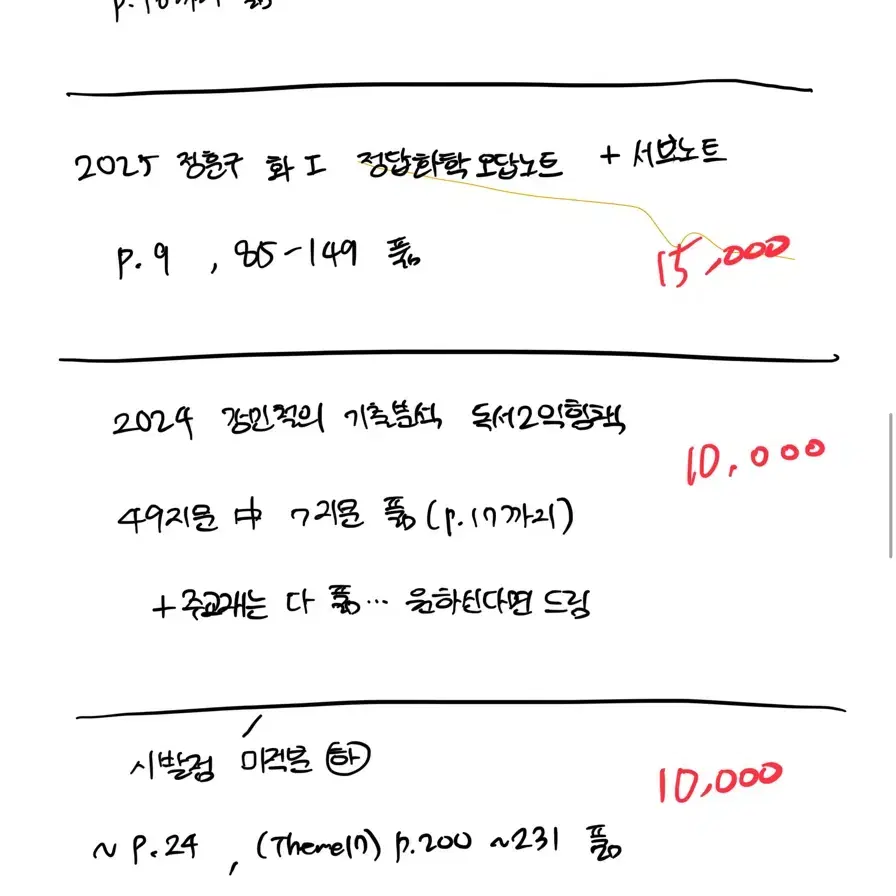 p.18까지 풂
2025 정훈구 화 I 정답화학 오답노트 + 서브노트
p.9 , 85-149 풂
15,000
2024 강민철의 기출분석 독서2 익힘책
10,000
49지문 中 7지문 풂 (p.17까지)
+ 주교재는 다 풂... 원하신다면 드림
시발점 미적분 하
10,000
~ p.24 , (Theme17) p.200 ~231 풂